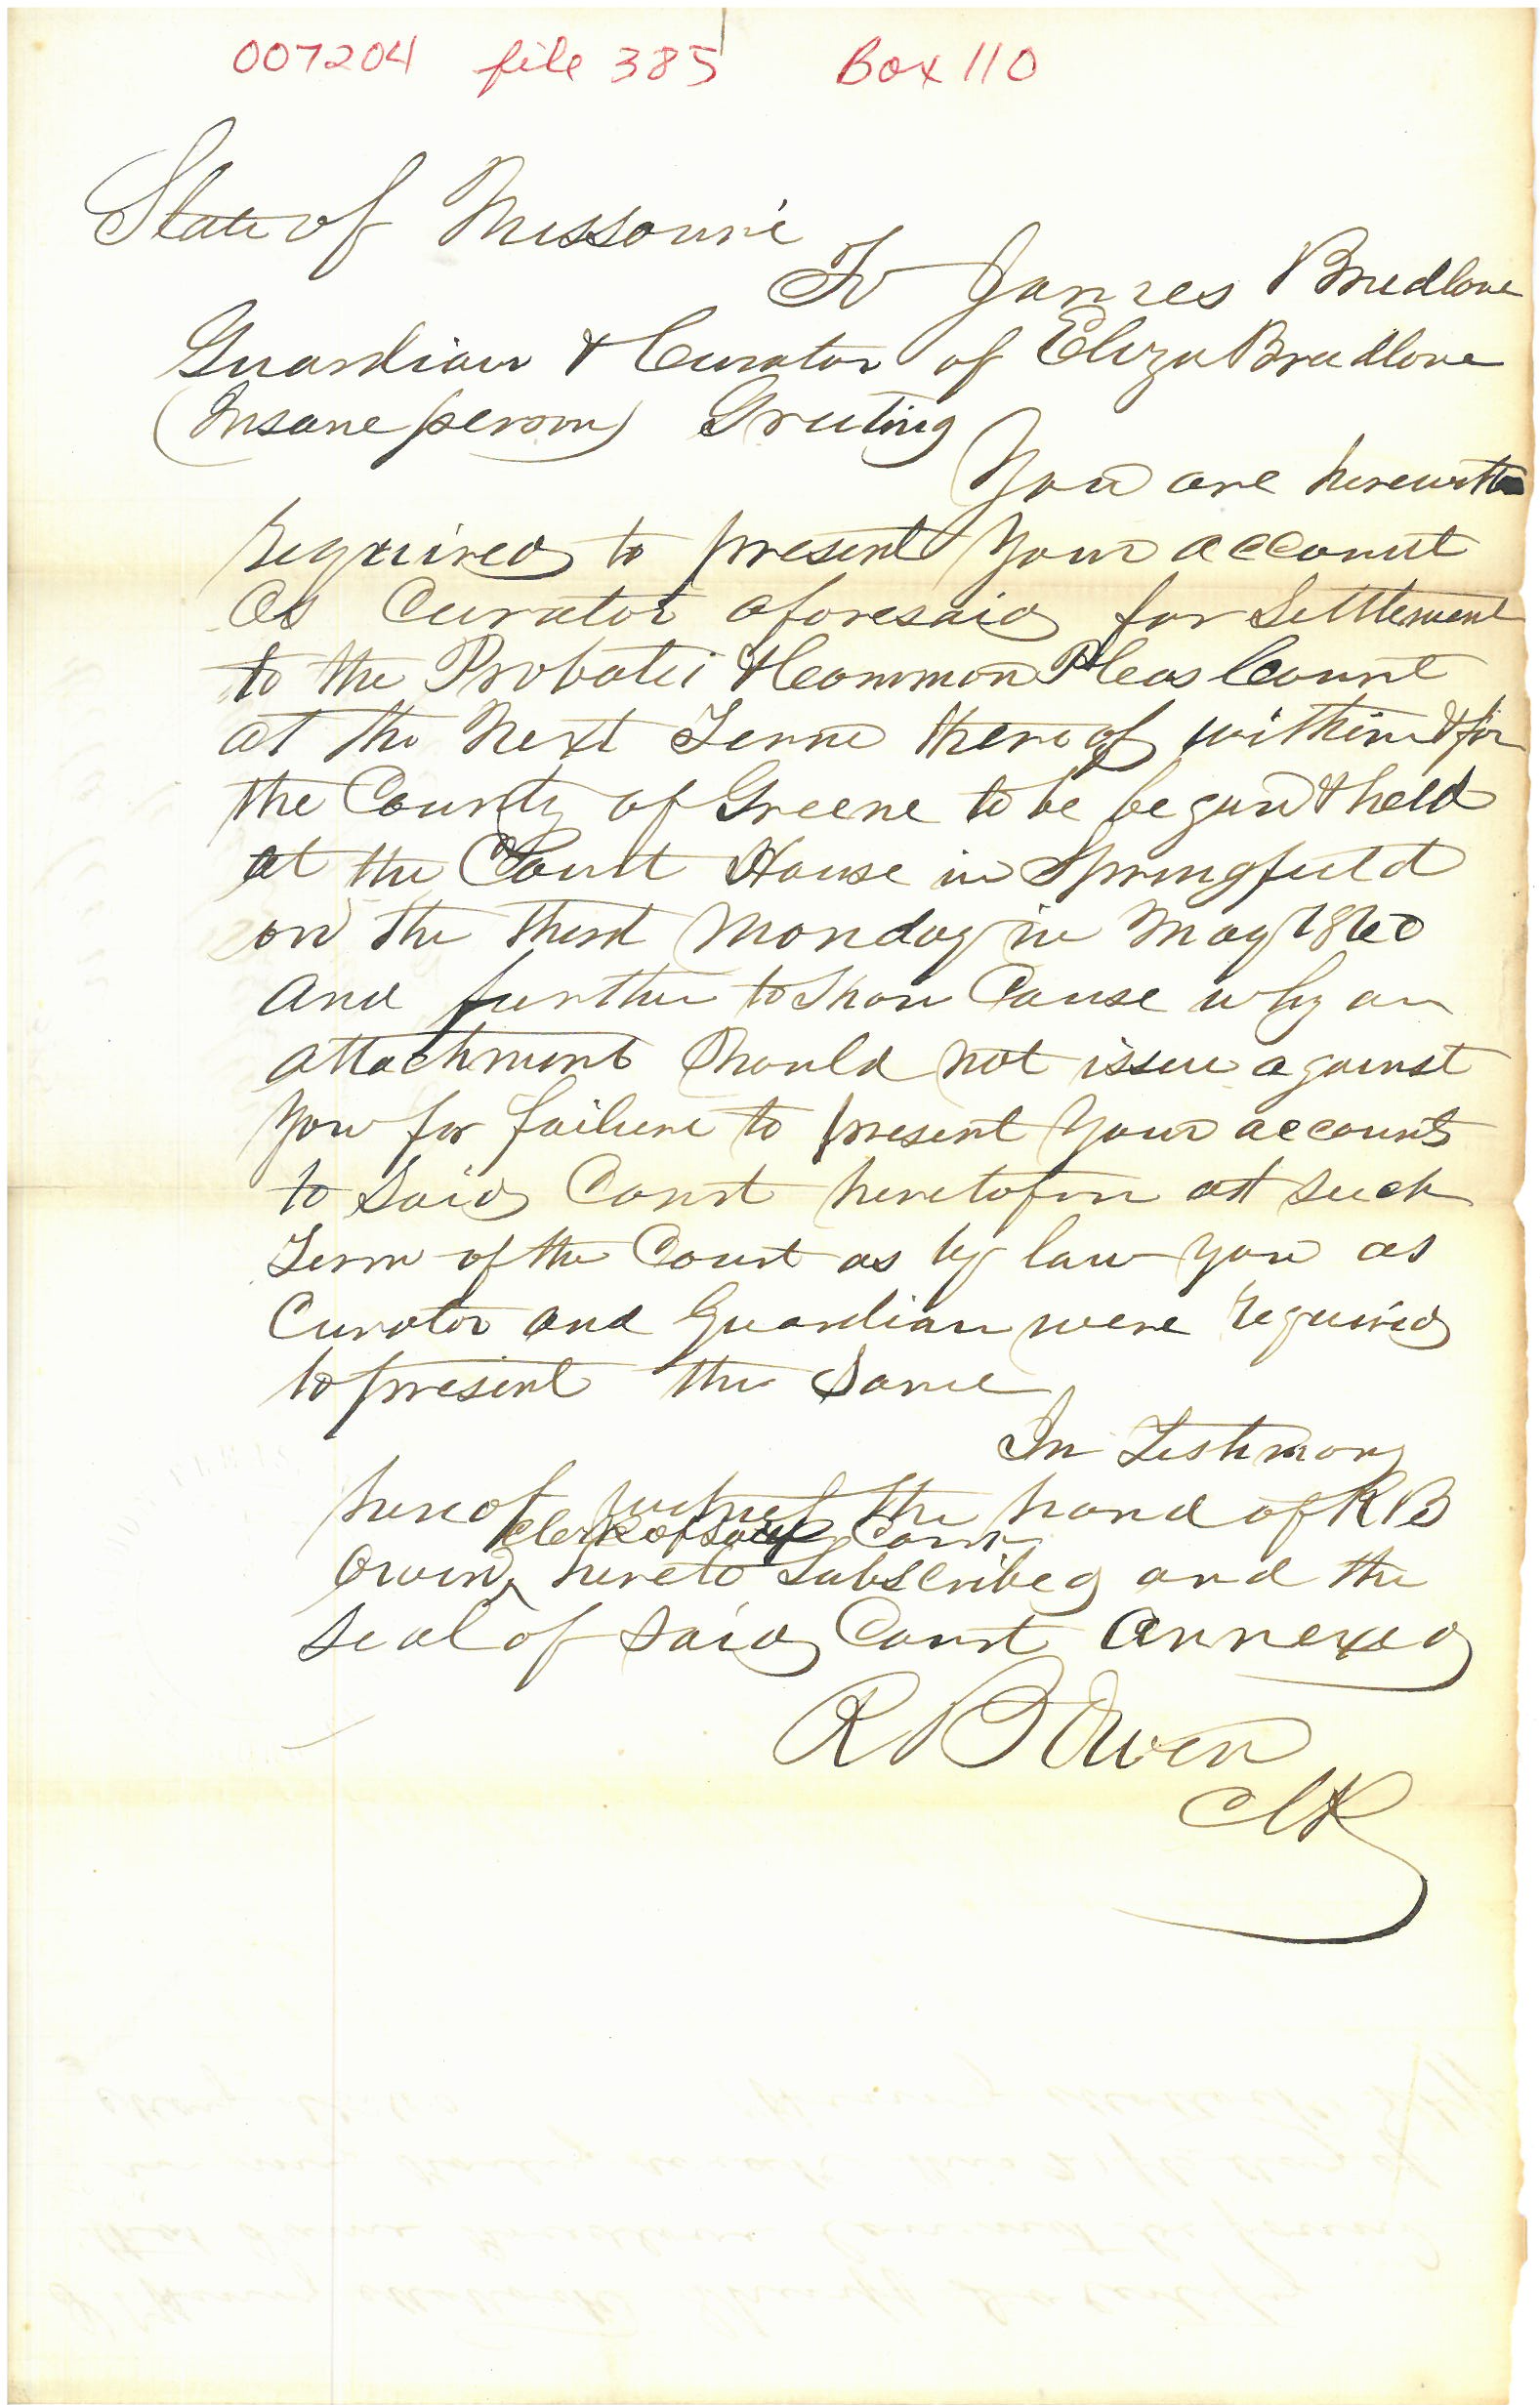 007204 file 385 Box 110
State of Missouri
To James Breedlove
Guardian & Curator of Eliza Breedlove
(Insane person) Greeting
You are herewith
required to present your account
as Curator aforesaid for Settlement
to the Probate & Common Pleas Court
at the Next Term thereof within & for
the County of Greene to be begun & held
at the Court House in Springfield
on the third Monday in May 1860
and further to Show Cause why an
attachment Should not issue against
you for failure to present your accounts
to Said Court heretofore at such
Term of the Court as by law you as
Curator and Guardian were required
to present the Same
In Testimony
hereof witness the hand of R B
Clerk of said Court
Owen hereto Subscribed and the
seal of said Court annexed
R B Owen
Clk